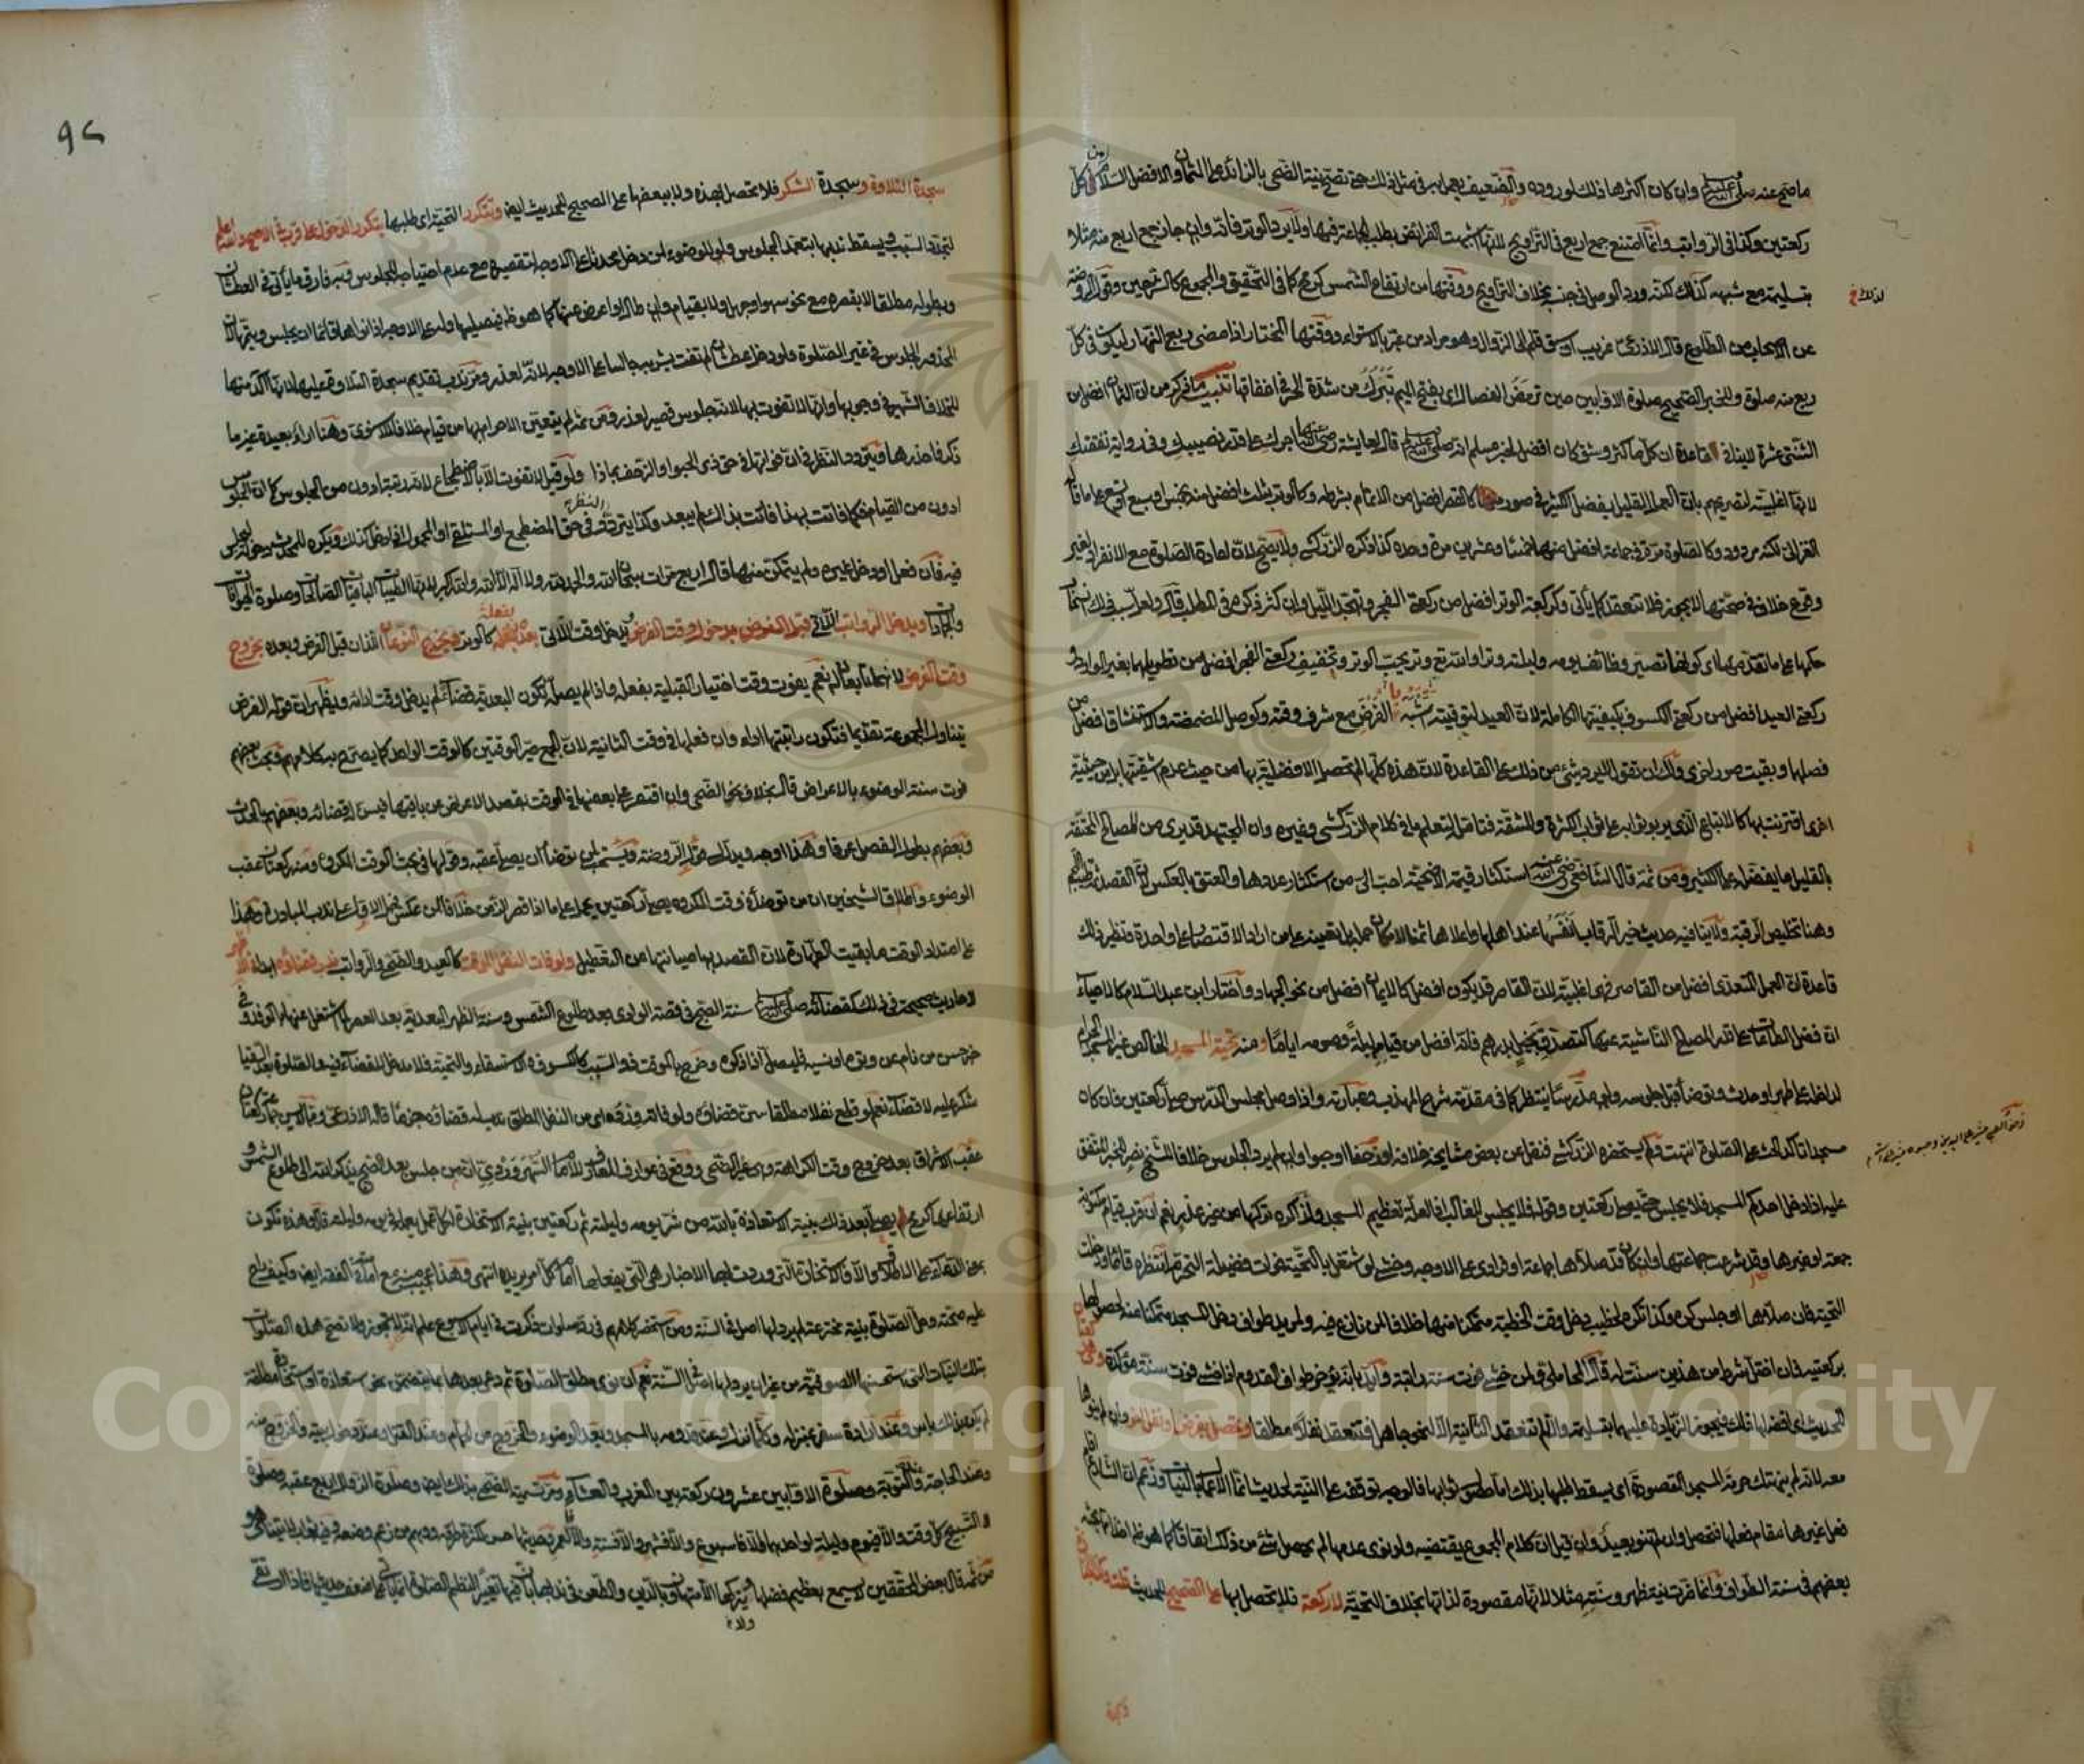 ما صح عنه صلى الله عليه وسلم وان كان اكثرها ذلك لوروده والضعيف يعمل به في مثل ذلك حتى تصح نية الضحى بالزائد على الثمان والافضل السلام من كل
ركعتين وكذا في الرواتب وانما امتنع جمع اربع في التراويح لانها اشبهت الفرائض بطلب الجماعة فيها ولا يرد الوتر فانه وان جاز جمع اربع منه مثلا
بتسليمة مع شبهه كذلك لكنه ورد الوصل في جنسه بخلاف التراويح ووقتها من ارتفاع الشمس كرمح كما في التحقيق والمجموع كالشرحين وقول الروضة
لذلك
عن الاصحاب من الطلوع قال الاذرعي غريب او سبق قلم الى الزوال وهو مراد من عبر بالاستواء ووقتها المختار اذا مضى ربع النهار ليكون في كل
ربع منه صلوة وللخبر الصحيح صلوة الاوابين حين ترمض الفصال اي بفتح الميم تبرك من شدة الحر في اخفافها تنبيه ما ذكر من ان الثمان افضل من
اثنتي عشرة لا ينافي قاعدة ان كل ما كثر وشق كان افضل لخبر مسلم انه صلى الله عليه وسلم قال لعايشة رضي الله عنها اجرك على قدر نصبك وفي رواية نفقتك
لانها اغلبية لتصريحهم بان العمل القليل يفضل الكثير في صور كالقصر افضل من الاتمام بشرطه وكالوتر بثلاث افضل منه بخمس او سبع او تسع على ما قاله
الغزالي لكنه مردود وكالصلوة مرة في جماعة افضل من فعلها خمسا وعشرين مرة وحده كذا ذكره الزركشي ولا يصح لان اعادة الصلوة مع الانفراد لغير
وقوع خلاف في صحتها لا يجوز فلا تنعقد كما يأتي وكركعة الوتر افضل من ركعتي الفجر وتهجد الليل وان كثر ذكره في المطلب قال ولعل سبب ذلك انسحاب
حكمها على ما تقدمها اي كونها تصير وظائف يومه وليلته وترا والله وتر يحب الوتر وتخفيف ركعتي الفجر افضل من تطويلهما بغير الوارد و
ركعتي العيد افضل من ركعتي الكسوف بكيفيتها الكاملة لان العيد لتوقيته اشبه الفرض مع شرف وقته وكوصل المضمضة والاستنشاق افضل من
فصلها وبقيت صور اخرى ولك ان تقول لا يرد شئ من ذلك على القاعدة لان هذه كلها لم تحصل الافضلية بها من حيث عدم اشقيتها بل من حيثية
اخرى اقترنت بها كالاتباع الذي يربو ثوابه على ثواب الكثرة والمشقة فتأمله لتعلم ما في كلام الزركشي وغيره وان المجتهد قد يرى من المصالح المحتفة
بالقليل ما يفضله على الكثير ومن ثمه قال الشافعي رضي الله عنه استكثار قيمة الاضحية احب الي من استكثار عددها والعتق بالعكس لان القصد ثمه طيب اللحم
وهنا تخليص الرقبة ولا ينافيه حديث خير الرقاب انفسها عند اهلها واغلاها ثمنا لامكان حمله على من اراد الاقتصار على واحدة ونظير ذلك
قاعدة ان العمل المتعدي افضل من القاصر فهي اغلبية لان القاصر قد يكون افضل كالايمان افضل من نحو الجهاد واختار ابن عبد السلام كالاحياء
ان فضل الطاعات على قدر المصالح الناشئة عنها كتصدق بخيل بدرهم فانه افضل من قيام ليلة وصومه اياما ومنه تحية المسجد الخالص غير المسجد الحرام
لداخل على طهر او حدث وتوضأ قبل جلوسه ولو مدرسا ينتظر كما في مقدمة شرح المهذب وعبارته واذا وصل مجلس الدرس صلى ركعتين فان كان
مسجدا تأكد الحث على الصلوة انتهت ولم يستحضره الزركشي فنقل عن بعض مشايخه خلافه او زحفا او حبوا وان لم يرد الجلوس خلافا للشيخ نصر للخبر المتفق
عليه اذا دخل احدكم المسجد فلا يجلس حتى يصلي ركعتين وقوله فلا يجلس للغالب اذ العلة تعظيم المسجد ولذا كره تركها من غير عذر نعم ان قرب قيام مكتوبة
جمعة او غيرها وقد شرعت جماعتها وان كان قد صلاها جماعة او فرادى على الاوجه وخشي لو اشتغل بالتحية فوات فضيلة التحرم انتظره قائما ودخلت
التحية فان صلاها او جلس كره وكذا تكره لخطيب دخل وقت الخطبة متمكنا منها خلافا لمن نازع فيه ولمريد طواف دخل المسجد متمكنا منه لحصولها
بركعتيه فان اختل شرط من هذين سنت له قال المحاملي ولمن خشي فوت سنة راتبة وايد بانه يؤخر طواف القدوم اذا خشي فوت سنة مؤكدة وهي ركعتان
للحديث اي افضلها ذلك فيجوز الزيادة عليهما بتسليمة والا لم تنعقد الثانية الا لنحو جاهل فتنعقد نفلا مطلقا وتحصل بفرض او نفل اخر وان لم ينوها
معه لانه لم ينتهك حرمة المسجد المقصودة اي يسقط طلبها بذلك اما حصول ثوابها فالوجه توقفه على النية لحديث انما الاعمال بالنيات وزعم ان الشارع اقام
فعل غيرها مقام فعلها فتحصل وان لم تنو بعيد وان قيل ان كلام المجموع يقتضيه ولو نوى عدمها لم يحصل شئ من ذلك اتفاقا كما هو ظاهر اخذا مما بحثه
بعضهم في سنة الطواف وانما ضرت نية ظهر وسنته مثلا لانها مقصودة لذاتها بخلاف التحية لا ركعة فلا تحصل بها على الصحيح للحديث قلت وكذا الجنازة و
٩٢
سجدة التلاوة وسجدة الشكر فلا تحصل بهذه ولا ببعضها على الصحيح للحديث ايضا وتتكرر التحية اي طلبها بتكرر الدخول على قرب في الاصح والله اعلم
لتجدد السبب ويسقط ندبها بتعمد الجلوس ولو للوضوء لمن دخل محدثا على الاوجه لتقصيره مع عدم احتياجه للجلوس وبه فارق ما يأتي في العطشان
وبطوله مطلقا لا بقصره مع نحو سهو او جهل ولا بقيام وان طال او اعرض عنها كما هو ظاهر فيصليها وله على الاوجه اذا نواها قائما ان يجلس ويتمها لان
المحذور الجلوس في غير الصلوة ولو دخل عطشان لم تفت بشربه جالسا على الاوجه لانه لعذر ومر ندب تقديم سجدة التلاوة عليها لانها آكد منها
للخلاف الشهير في وجوبها وانها لا تفوت بها لانه جلوس قصير لعذر ومن ثمه لم يتعين الاحرام بها من قيام خلافا للاسنوي وهنا اراء بعيدة غير ما
ذكر فاحذرها ويتردد النظر في ان فواتها في حق ذي الحبو او الزحف بماذا ولو قيل لا تفوت الا بالاضطجاع لانه رتبة ادون من الجلوس كما ان الجلوس
ادون من القيام فكما فاتت بهذا فاتت بذاك لم يبعد وكذا يتردد النظر في حق المضطجع او المستلقي او المحمول اذا دخل كذلك ويكره للمحدث دخوله ليجلس
فيه فان فعل او دخل غيره ولم يتمكن منها قال اربع مرات سبحان الله والحمد لله ولا اله الا الله والله اكبر لانها الطيبات الباقيات الصالحات وصلوة الحيوانات
والجمادات ويدخل وقت الرواتب اللاتي قبل الفرض بدخول وقت الفرض ويدخل وقت اللاتي بعده بفعله كالوتر ويخرج النوعان اللذان قبل الفرض وبعده بخروج
وقت الفرض لانهما تابعان له نعم يفوت وقت اختيار القبلية بفعله واذا لم يصله تكون البعدية قضاء لم يدخل وقت ادائه ويظهر ان قوله الفرض
يتناول المجموعة تقديما فتكون راتبتها اداء وان فعلها في وقت الثانية لان الجمع صير الوقتين كالوقت الواحد كما يصرح به كلامهم وبحث بعضهم
فوت سنة الوضوء بالاعراض قال بخلاف نحو الضحى وان اقتصر على بعضها في الوقت بقصد الاعراض عن باقيها فيسن له قضائه وبعضهم بالحدث
وبعضهم بطول الفصل عرفا وهذا اوجه ويدل له قول الروضة ويستحب لمن توضأ ان يصلي عقبه وقولها في بحث الوقت المكروه ومنه ركعتان عقب
الوضوء واطلاق الشيخين ان من توضأ في وقت الكراهة يصلي ركعتين يحمل على ما اذا قصر الزمن خلافا لمن عكس فحمل الاول على ندب المبادرة وهذا
على امتداد الوقت ما بقيت الطهارة لان القصد بها صيانتها عن التعطيل ولو فات النفل المؤقت كالعيد والضحى والرواتب ندب قضاؤه ابدا في الاظهر
لاحاديث صحيحة في ذلك كقضائه صلى الله عليه وسلم سنة الصبح في قصة الوادي بعد طلوع الشمس وسنة الظهر البعدية بعد العصر لما اشتغل عنها بالوفد وفي
خبر حسن من نام عن وتره او نسيه فليصل اذا ذكره وخرج بالمؤقت ذو السبب كالكسوف والاستسقاء والتحية فلا مدخل للقضاء فيه والصلوة بعد السقيا
شكر عليه لا قضاء نعم لو قطع نفلا مطلقا سن قضاؤه ولو فاته ورده اي من النفل المطلق ندب له قضاؤه جزما قاله الاذرعي
عقب الاشراق بعد خروج وقت الكراهة وهي غير الضحى ووقع في عوارف المعارف للامام السهروردي ان من جلس بعد الصبح يذكر الله الى طلوع الشمس و
ارتفاعها كرمح يصلي بعد ذلك بنية الاستعاذة بالله من شر يومه وليلته ثم ركعتين بنية الاستخارة لكل عمل يعمله في يومه وليلته قال وهذه تكون
بمعنى الدعاء على الاطلاق والا فالاستخارة التي وردت بها الاخبار هي التي يفعلها امام كل امر يريده انتهى وهذا عجيب منه مع امامته في الفقه ايضا وكيف راج
عليه صحة وحل الصلوة بنية مخترعة لم يرد لها اصل في السنة ومن استحضر كلامهم في رد صلوات ذكرت في ايام الاسبوع علم انه لا تجوز ولا تصح هذه الصلوات
بتلك النيات التي استحسنها الصوفية من غير ان يرد لها اصل في السنة نعم ان نوى مطلق الصلوة ثم دعى بعدها بما يتضمن نحو استعاذة او استخارة مطلقة
لم يكن بذلك باس وعند ارادة سفر بمنزله وكلما نزل وعند قدومه بالمسجد وبعد الوضوء والخروج من الحمام وعند القتل وعند دخول بيته والخروج منه
وعند الحاجة والتوبة وصلوة الاوابين عشرون ركعة بين المغرب والعشاء ومر تسمية الضحى بذلك ايضا وصلوة الزوال اربع عقبه وصلوة
التسبيح كل وقت والا فيوم وليلة او احدهما والا فاسبوع والا فشهر والا فسنة والا فالعمر وحديثها حسن لكثرة طرقه ووهم من زعم وضعه وفيه ثواب لا يتناهى و
من ثمه قال بعض المحققين لا يسمع بعظيم فضلها ويتركها الا متهاون بالدين والطعن في ندبها بان فيها تغييرا لنظم الصلوة انما يأتي على ضعف حديثها فاذا ارتقى
Copyright © King Saud University